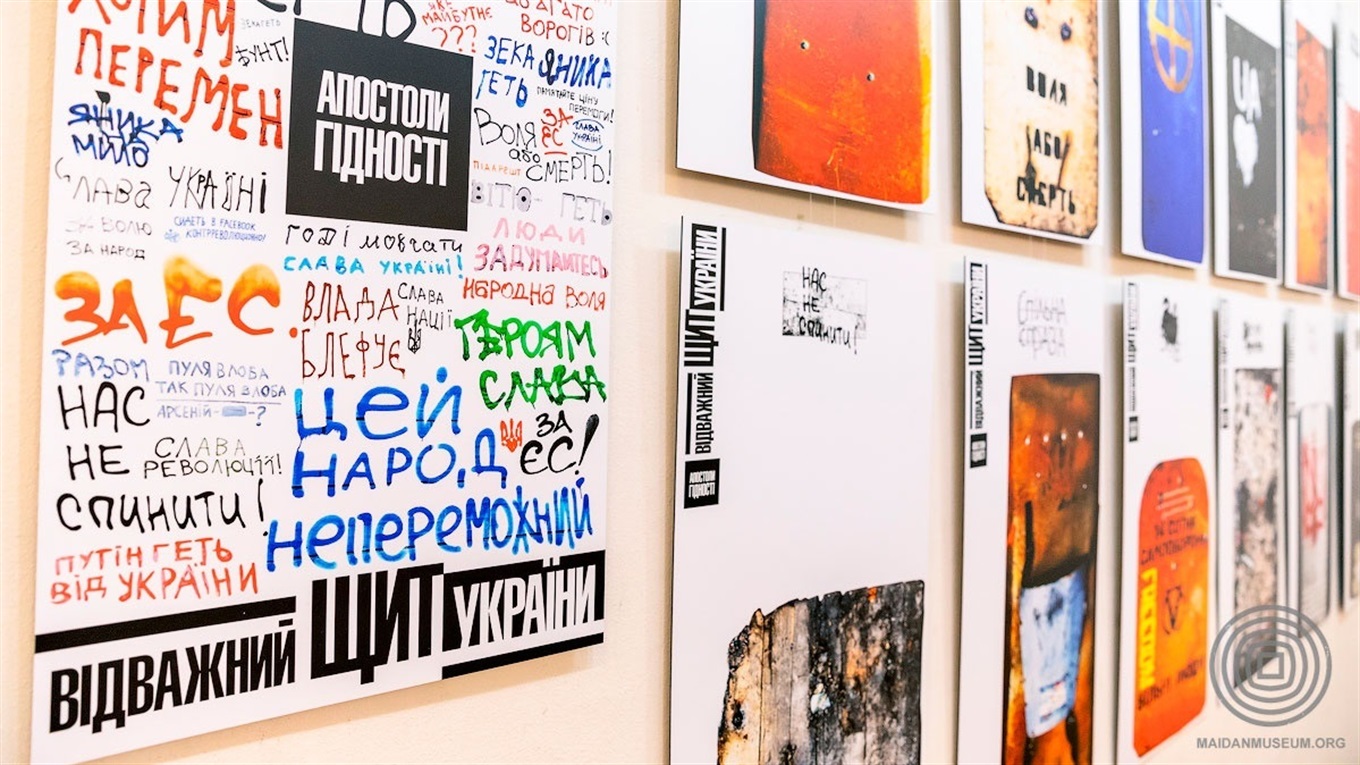 ХОТИМ
ПЕРЕМЕН
БУНТ!
ЯКЕ
МАЙБУТНЄ
???
ВОРОГІВ :(
АПОСТОЛИ
ГІДНОСТІ
ЗЕКА ЯНИКА
ГЕТЬ
ПАМ'ЯТАЙТЕ ЦІНУ
ПЕРЕМОГИ!
ЯНИКА
МИЛО
Воля
або
СМЕРТЬ!
ЗА
ЄС
СЛАВА
УКРАЇНІ
ПІД АРЕШТ
СЛАВА УКРАЇНІ
ЗА ВОЛЮ
ЗА НАРОД
СИДЕТЬ В FACEBOOK
КОНТРРЕВОЛЮЦИОННО!
ВІТЮ - ГЕТЬ
ЛЮДИ
ЗАДУМАЙТЕСЬ
ГОДІ МОВЧАТИ
СЛАВА УКРАЇНІ!
НАРОДНА ВОЛЯ
ЗА ЄС.
ВЛАДА
БЛЕФУЄ
СЛАВА
НАЦІЇ
ГЕРОЯМ
СЛАВА
РАЗОМ
НАС
НЕ
СПИНИТИ!
ПУЛЯ В ЛОБА
ТАК ПУЛЯ В ЛОБА
АРСЕНІЙ- -?
СЛАВА
РЕВОЛЮЦІЇ!
ЦЕЙ
НАРОД
НЕПЕРЕМОЖНИЙ
ЗА
ЄС!
ПУТІН ГЕТЬ
ВІД УКРАЇНИ
ВІДВАЖНИЙ ЩИТ УКРАЇНИ
ВОЛЯ
АБО
СМЕРТЬ
UA
ВІДВАЖНИЙ ЩИТ УКРАЇНИ
АПОСТОЛИ
ГІДНОСТІ
НАС
НЕ
СПИНИТИ!
ВІДВАЖНИЙ ЩИТ УКРАЇНИ
СПІЛЬНА
СПРАВА
ВІДВАЖНИЙ ЩИТ УКРАЇНИ
14 СОТНЯ
САМООБОРОНИ
MAIDANMUSEUM.ORG